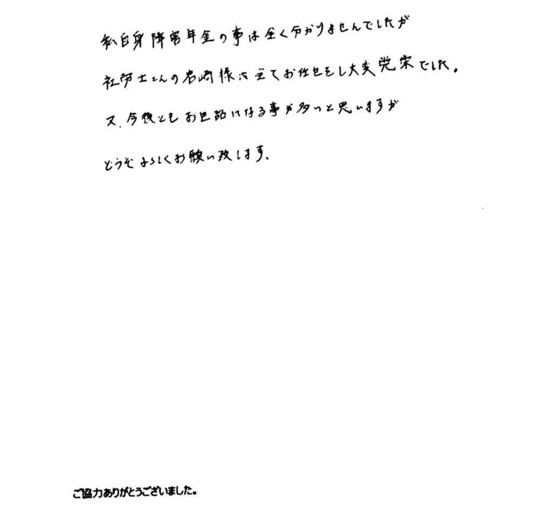 私自身障害年金の事は全く分かりませんでしたが
社労士さんの岩崎様に全てお任せをし大変光栄でした。
又、今後ともお世話になる事が多いと思いますが
どうぞよろしくお願い致します。
ご協力ありがとうございました。